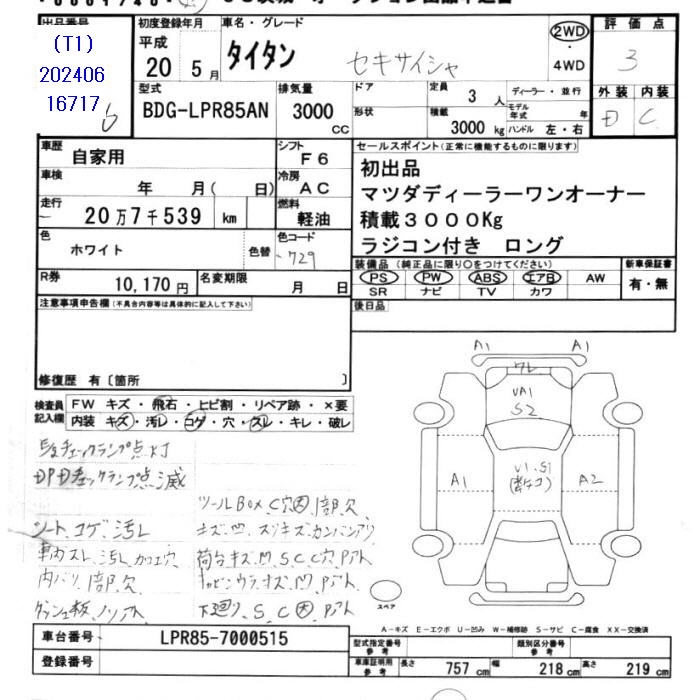 出品番号
(T1)
202406
16717
6
初度登録年月
平成
20 5月
車名・グレード
タイタン セキサイシャ
2WD
・
4WD
評価点
3
型式
BDG-LPR85AN
排気量
3000
cc
ドア
形状
定員
3 人
積載
3000 kg
ディーラー・並行
モデル年式 年
ハンドル 左・右
外装 内装
D C
車歴
自家用
シフト
F6
セールスポイント(正常に機能するものに限ります)
初出品
マツダディーラーワンオーナー
積載3000Kg
ラジコン付き ロング
車検
年 月( 日)
冷房
AC
走行
20万7千539 km
燃料
軽油
色
ホワイト
色替
色コード
729
装備品(純正品に限り○をつけてください)
PS PW ABS エアB AW
SR ナビ TV カワ
新車保証書
有・無
R券
10,170円
名変期限
月 日
後日品
注意事項申告欄(不具合内容等は具体的に記入して下さい)
修復歴 有〔箇所 〕
検査員記入欄
FW キズ・飛石・ヒビ割・リペア跡・×要
内装 キズ・汚レ・コゲ・穴・スレ・キレ・破レ
チェックランプ点灯
DPDチェックランプ点滅
シート、コゲ、汚レ
車内スレ、汚レ
内バリ1部欠
ツールBOX、C穴大1部欠
キズ、凹
荷台キズ、凹、S、C、C穴
下廻り、S、C大
A1 A1
ワレ
UA1
S2
A1
A2
スペア
A-キズ E-エクボ U-凹み W-補修跡 S-サビ C-腐食 XX-交換済
車台番号
LPR85-7000515
登録番号
型式指定番号
参考
類別区分番号
参考
車庫証明用
参考
長さ 757 cm 幅 218 cm 高さ 219 cm